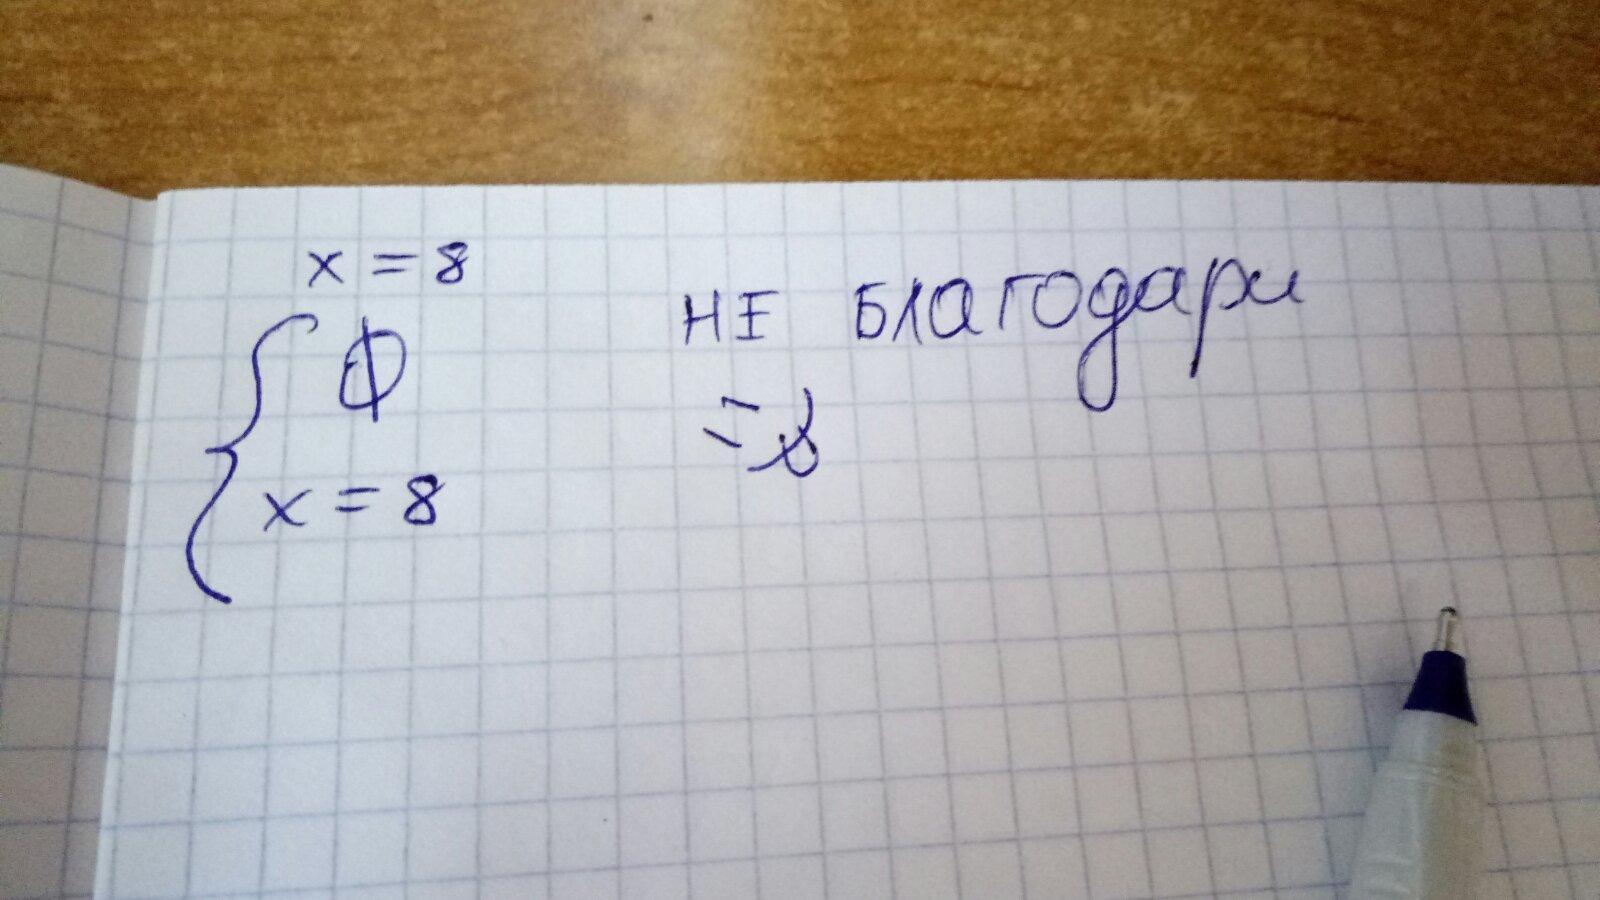 x = 8
{ ∅
x = 8
НЕ БЛАГОДАРИ